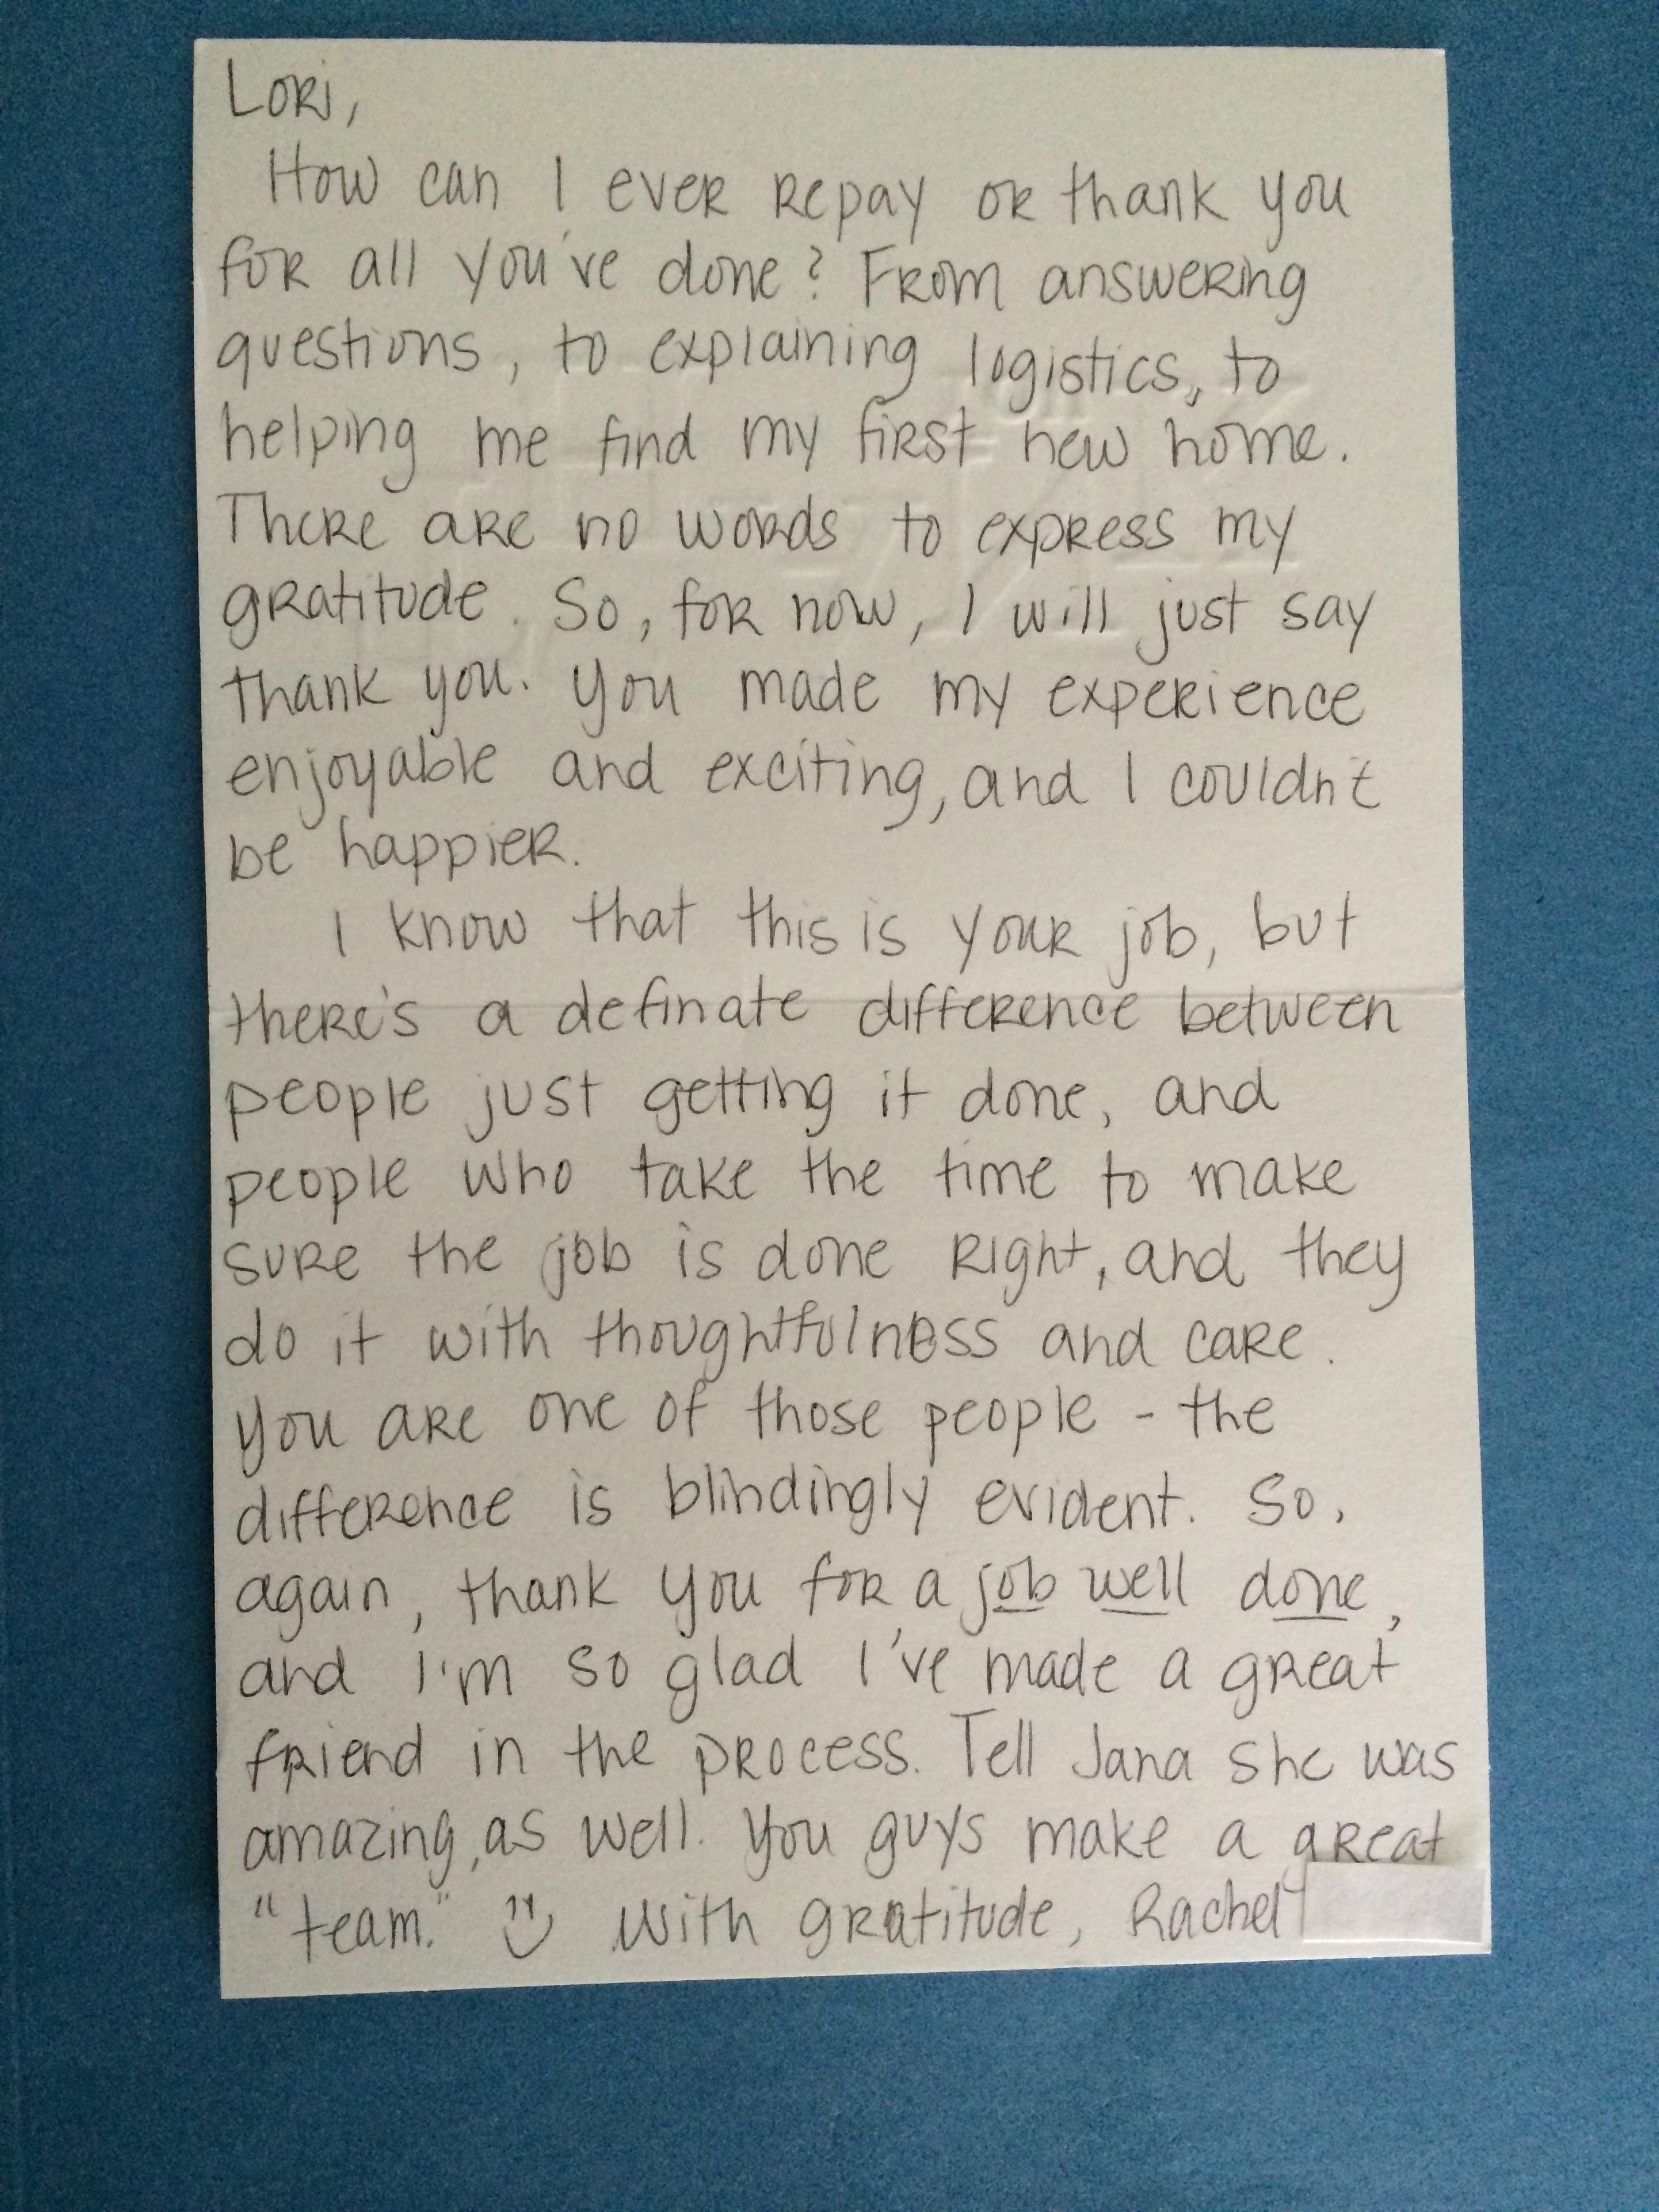 Lori,
How can I ever repay or thank you
for all you've done? From answering
questions, to explaining logistics, to
helping me find my first new home.
There are no words to express my
gratitude. So, for now, I will just say
thank you. You made my experience
enjoyable and exciting, and I couldn't
be happier.
I know that this is your job, but
there's a definate difference between
people just getting it done, and
people who take the time to make
sure the job is done right, and they
do it with thoughtfulness and care.
You are one of those people - the
difference is blindingly evident. So,
again, thank you for a job well done,
and I'm so glad I've made a great
friend in the process. Tell Jana she was
amazing, as well. You guys make a great
"team." With gratitude, Rachel